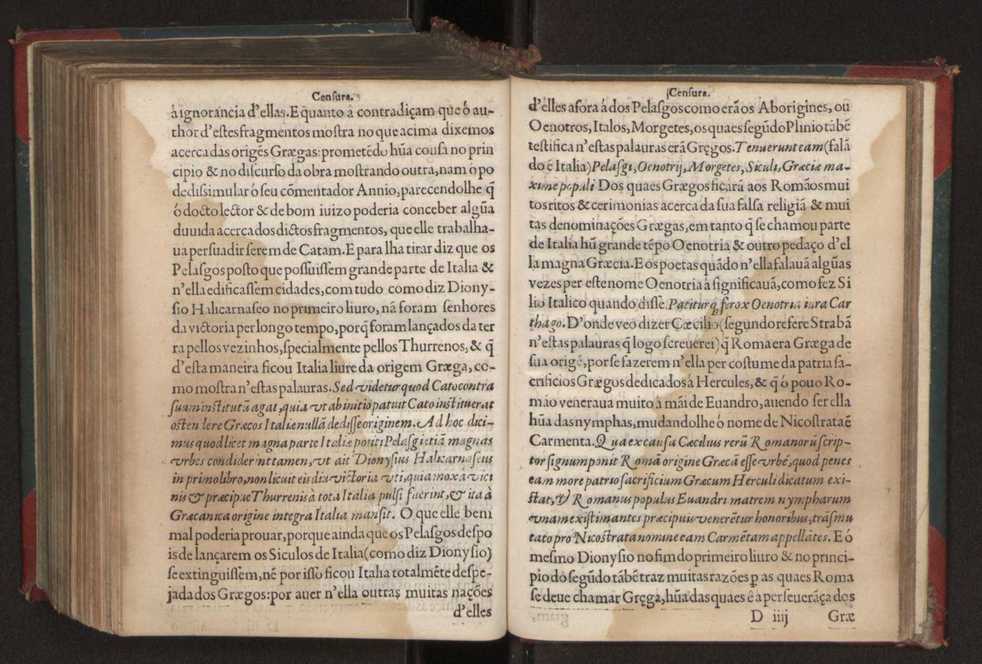 Censura.
à ignorancia d'ellas. E quanto a contradiçam que ó au-
thor d'estes fragmentos mostra no que acima dixemos
acerca das origẽs Grægas: prometẽdo hũa cousa no prin
cipio & no discurso da obra mostrando outra, nam o po
de dissimular ó seu cõmentador Annio, parecendolhe q̃
ó docto lector & de bom iuizo poderia conceber algũa
duuida acerca dos dictos fragmentos, que elle trabalha-
ua persuadir serem de Catam. E para lha tirar diz que os
Pelasgos posto que possuissem grande parte de Italia &
n'ella edificassem cidades, com tudo como diz Diony-
sio Halicarnaseo no primeiro liuro, nã foram senhores
da victoria per longo tempo, porq̃ foram lançados da ter
ra pellos vezinhos, specialmente pellos Thurrenos, & q̃
d'esta maneira ficou Italia liure da origem Græga, co-
mo mostra n'estas palauras. Sed videtur quod Cato contra
suum institutũ agat, quia vt ab initio patuit Cato instituerat
ostendere Græcos Italie nullã dedisse originem. Ad hoc dici-
mus quod licet magna parte Italie potiti Pelasgi etiã magnas
vrbes condiderint tamen, vt ait Dionysius Halicarnaseus
in primo libro, non licuit eis diu victoria vti, quia mox a vici
nis & præcipue Thurrenis à tota Italia pulsi fuerint, & ita à
Græcanica origine integra Italia mansit. O que elle beni
mal poderia prouar, porque ainda que os Pelasgos despo
is de lançarem os Siculos de Italia (como diz Dionysio)
se extinguissem, nẽ por isso ficou Italia totalmẽte despe-
jada dos Grægos: por auer n'ella outras muitas nações
d'elles
Censura.
d'elles afora à dos Pelasgos como erão os Aborigines, ou
Oenotros, Italos, Morgetes, os quaes segũdo Plinio tãbẽ
testifica n'estas palauras erã Gregos. Tenuerunt eam (falã
do ẽ Italia) Pelasgi, Oenotrij, Morgetes, Siculi, Græciæ ma-
xime populi Dos quaes Grægos ficará aos Romãos mui
tos ritos & cerimonias acerca da sua falsa religiã & mui
tas denominações Grægas, em tanto q̃ se chamou parte
de Italia hũ grande tẽpo Oenotria & outro pedaço d'el
la magna Græcia. E os poetas quãdo n'ella falauã algũas
vezes per este nome Oenotria à significauã, como fez Si
lio Italico quando disse. Patiturq̃ ferox Oenotria iura Car
thago. D'onde veo dizer Cæcilio (segundo refere Strabã
n'estas palauras q̃ logo screuerei) q̃ Roma era Græga de
sua origẽ, por se fazerem n'ella per costume da patria sa-
crificios Grægos dedicados à Hercules, & q̃ o pouo Ro-
mão veneraua muito á mãi de Euandro, auendo ser ella
hũa das nymphas, mudandolhe ó nome de Nicostrata ẽ
Carmenta. Qua ex causa Cæcilius rerũ Romanorũ scrip-
tor signum ponit Romã origine Græcã esse vrbẽ, quod penes
eam more patrio sacrificium Græcum Herculi dicatum exi-
stat, & Romanus populus Euandri matrem nympharum
vnam existimantes præcipuis venerẽtur honoribus, trãsmu
tato pro Nicostrata nomune eam Carmẽtam appellates. E ó
mesmo Dionysio no fim do primeiro liuro & no princi-
pio do segũdo tãbẽ traz muitas razões p as quaes Roma
se deue chamar Grega, hũa das quaes ê a perseuerãça dos
D iiij Græ